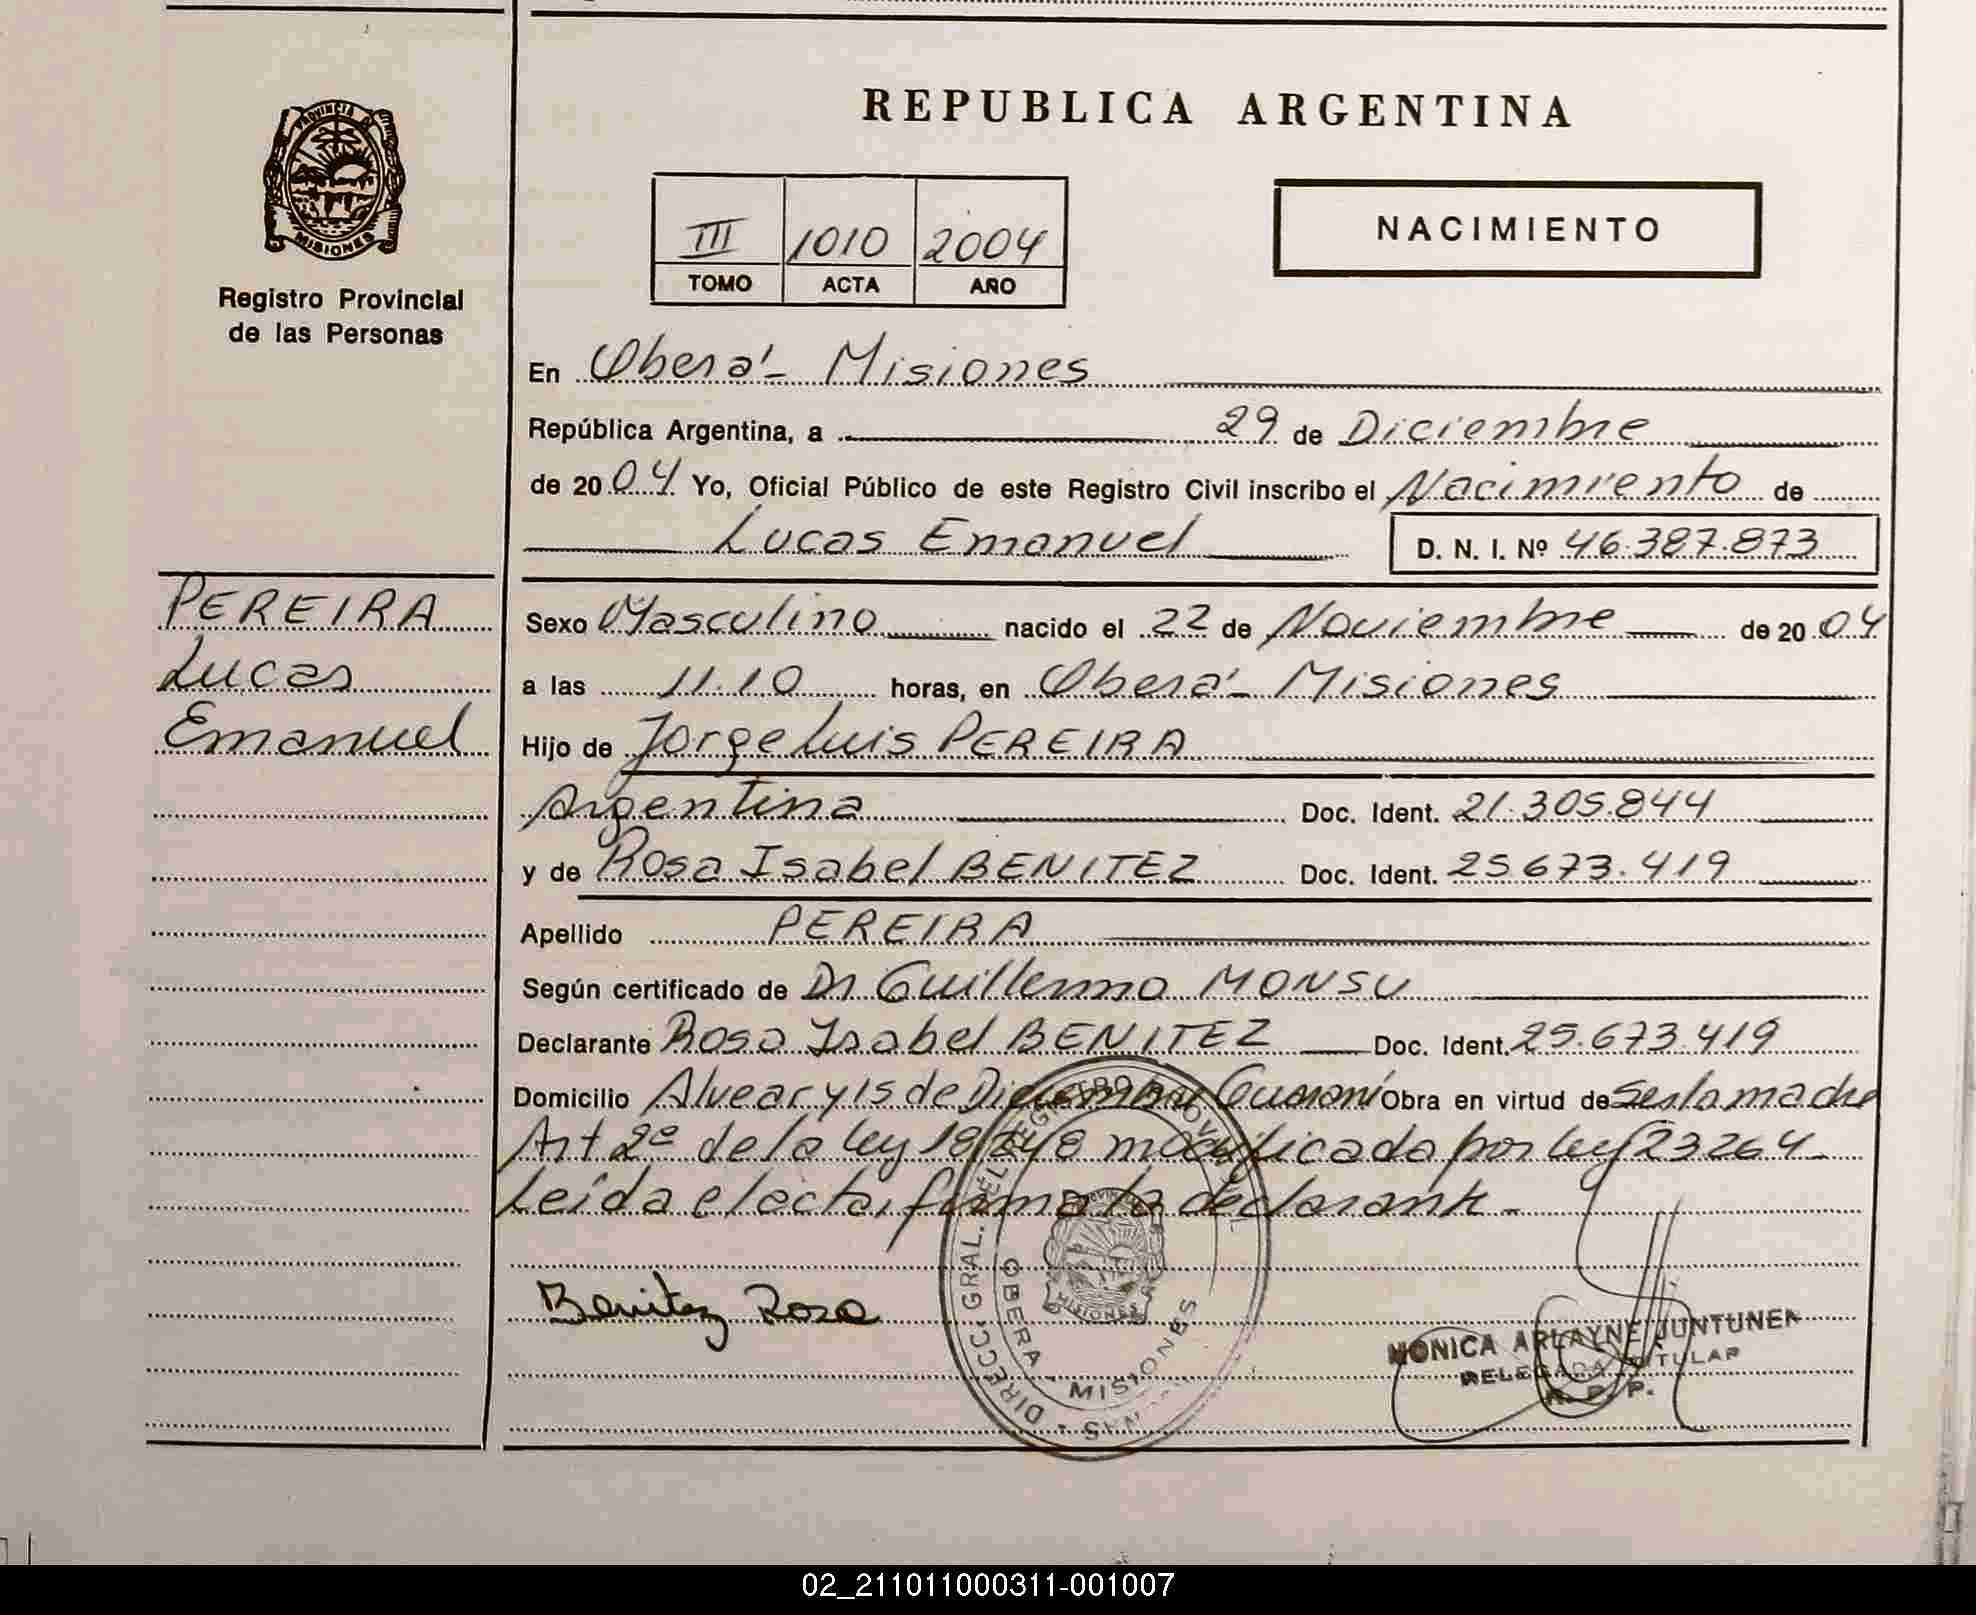 REPUBLICA ARGENTINA
PROVINCIA D
MISIONES
Registro Provincial
de las Personas
III 1010 2004
TOMO ACTA AÑO
NACIMIENTO
En Oberá - Misiones
República Argentina, a 29 de Diciembre
de 2004 Yo, Oficial Público de este Registro Civil inscribo el Nacimiento de
Lucas Emanuel D. N. I. Nº 46.387.873
PEREIRA
Lucas
Emanuel
Sexo Masculino nacido el 22 de Noviembre de 2004
a las 11.10 horas, en Oberá - Misiones
Hijo de Jorge Luis PEREIRA
Argentina Doc. Ident. 21.305.844
y de Rosa Isabel BENITEZ Doc. Ident. 25.673.419
Apellido PEREIRA
Según certificado de Dr Guillermo MONSU
Declarante Rosa Isabel BENITEZ Doc. Ident. 25.673.419
Domicilio Alvear y 15 de Obra en virtud de madre
Art 2º de la ley modificada por ley 23264 -
Leída el acta, firma la declarante -
Benitez Rosa
DIRECC. GRAL. DEL REGISTRO PROVINCIAL
OBERA MISIONES
MISIONES
MONICA ARLAYNE JUNTUNEN
DELEGADA TITULAR
R. P. P.
02_211011000311-001007